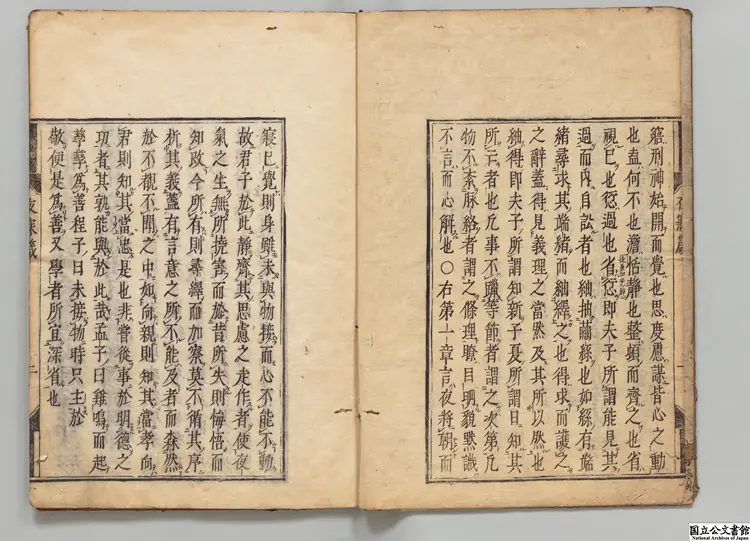 寤形神始開而覺也思度慮謀皆心之動
也盍何不也澹恬靜也整頓而齊之也省
視已也愆過也省愆即夫子所謂能見其
過而内自訟者也紬抽繭絲也如絲有端
緒尋求其端緒而紬繹之也得求而護之
之辭蓋得見義理之當然及其所以然也
紬得即夫子所謂知新子夏所謂日知其
所亡者也凡事不躐等節者謂之次第凡
物不紊脉絡者謂之條理瞭目明貌黙識
不言而心解也〇右第一章言夜將朝而
寢已覺則身雖未與物接而心不能不動
故君子於此靜齊其思慮之走作者使夜
氣之生無所撓害而於昔所失則悔悟而
知改今所有則尋繹而加察莫不循其序
析其義蓋有言意之所不能及者而森然
於不覩不聞之中如向親則知其當孝向
君則知其當忠是也非嘗從事於明德之
功者其孰能與於此哉孟子曰雞鳴而起
孳孳爲善程子曰未接物時只主於
敬便是爲善又學者所宜深省也
夜寐箴
二
国立公文書館
National Archives of Japan